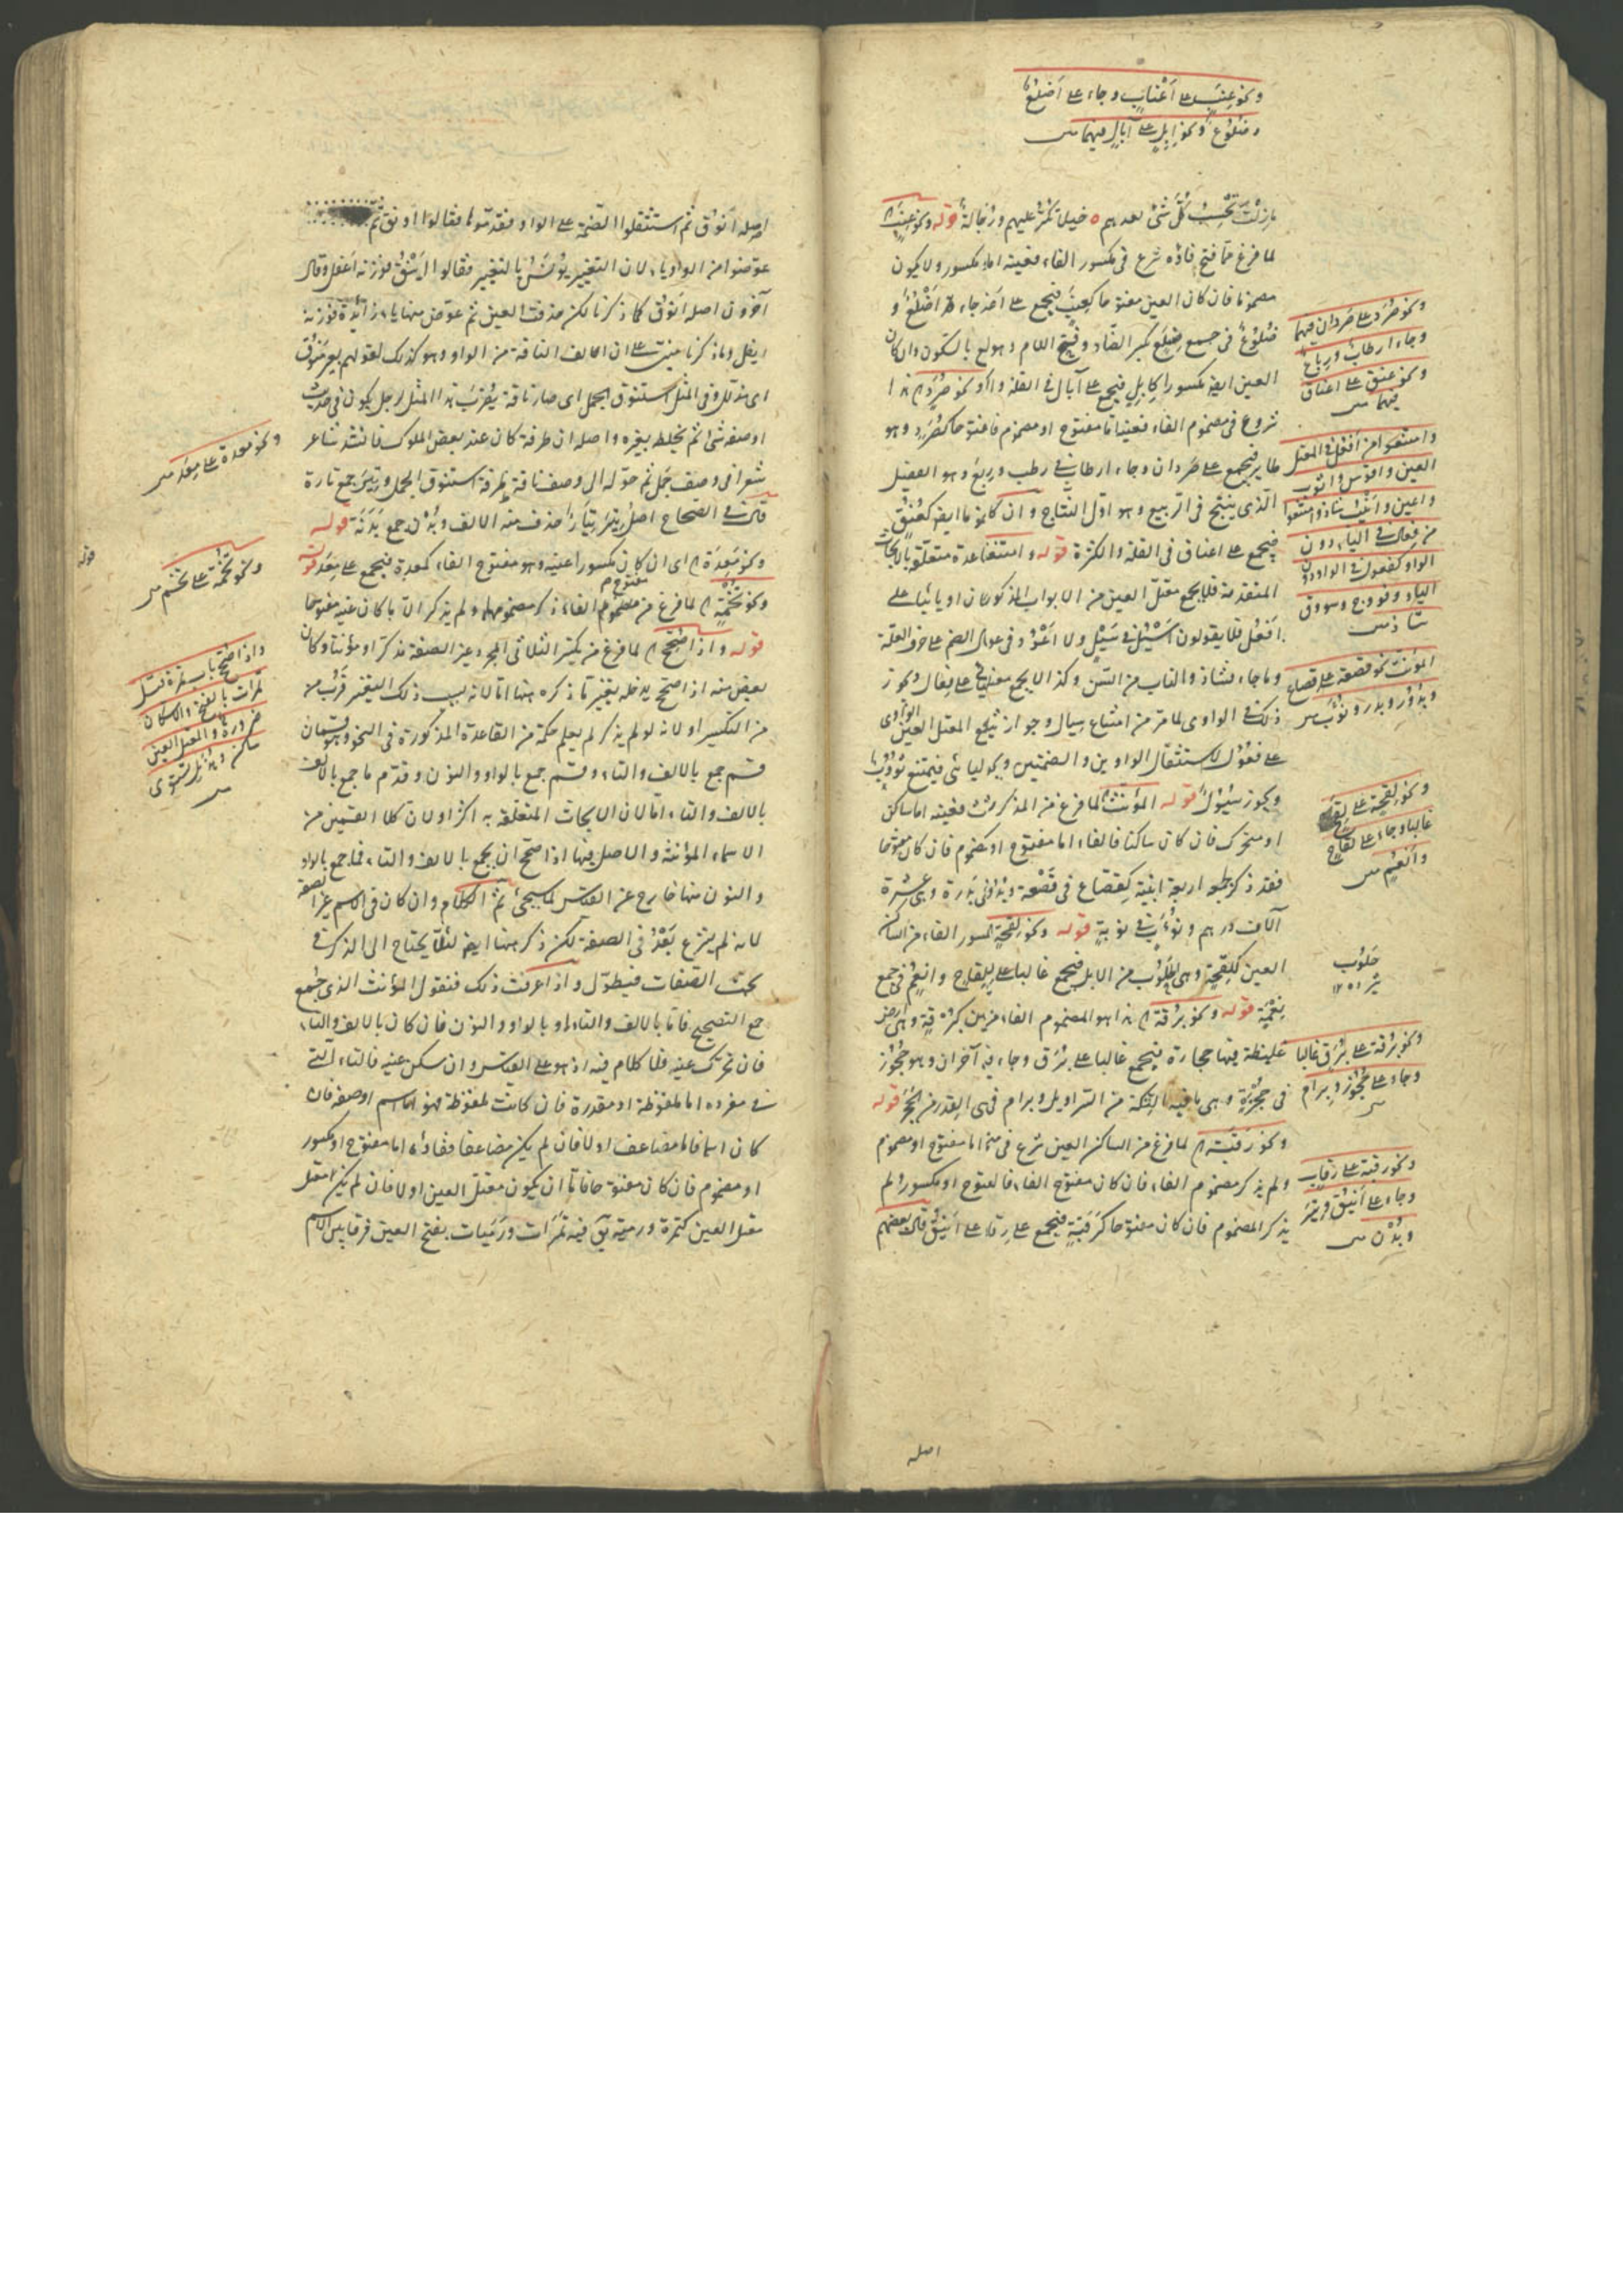 ونحو عِنَب على أعْنابٍ وجاء على أضلُعٌ
وضلوع ونحو إبل على آبالٍ فيهما
ما زلتَ تَحْسِبُ كلَّ شئ بعدهم خيلا تكر عليهم ورجالا قوله ونحو عِنَب
لما فرغ مما فتح فاؤه شرع فى مكسور الفاء فعينه اما مكسور ولا يكون
مضموما فان كان العين مفتوحا كعِنَب فيجمع على اعناب وجاء أَضْلُعٌ و
ضُلُوعٌ فى جمع ضِلَع بكسر الضاد وفتح اللام وهو لغة بالسكون وان كان
العين ايضا مكسورا كإبِلٍ فيجمع على آبال فى القلة قوله ونحو صُرَدٍ هذا
شروع فى مضموم الفاء فعينه اما مفتوح او مضموم فان كان مفتوحا كصُرَدٍ وهو
طاير فيجمع على صردان وجاء ارطاب فى رطب ورُبَع وهو الفصيل
الذى ينتج فى الربيع وهو اول النتاج وان كان مضموما ايضا كعُنُقٍ
فيجمع على اعناق فى القلة والكثرة قوله وامتنعوا هذه قاعدة متعلقة بالابحاث
المتقدمة فلا يجمع معتل العين من الابواب المذكورة كان او يائيا على
افعُل فلا يقولون أَسْيُل فى سَيْل ولا أَعْوُد فى عود لثقل الضم على حرف العلة
وما جاء فشاذ والناب من السن وكذا لا يجمع معتل على فِعَال ويجوز
ذلك فى الواوى لما مر من امتناع سيال وجواز ثياب المعتل العين الواوى
على فُعُول لاستثقال الواوين والضمتين ويجوز اليائى فيمتنع ثُوُوبٌ
ويجوز سُيُول قوله المؤنث لما فرغ من المذكر شرع فعينه اما ساكن
او متحرك فان كان ساكنا فالفاء اما مفتوح او مضموم فان كان مفتوحا
فقد ذكر لجمعه اربعة ابنية كقِصَاع فى قَصْعة وبُدُور فى بَدْرة وهى عشرة
آلاف درهم ونُوَب فى نوبة قوله ونحو لِقْحة لمكسور الفاء من الساكن
العين كلِقْحة وهى الحلوب من الابل فيجمع غالبا على لِقَح ولِقَاح وانعم فى جمع
نِعْمة قوله ونحو بُرْقة هذا هو المضموم الفاء منهن كبُرْقة وهى ارض
غليظة فيها حجارة فيجمع غالبا على بُرَق وجاء فيه آخران وهو حُجُوز
فى حُجْزة وهى ما فيه التكة من السراويل وبرام فى القدر من الحجر قوله
ونحو رَقَبة لما فرغ من الساكن العين شرع فى متحرك اما مفتوح او مضموم
ولم يذكر مضموم الفاء فان كان مفتوح الفاء فالعين مفتوح او مكسور ولم
يذكر المضموم فان كان مفتوحا كرَقَبَة فيجمع على رقاب وعلى أَيْنُق قال بعضهم
ونحو صُرَد على صردان فيهما
وجاء ارطاب ورباع
ونحو عنق على اعناق
فيهما
وامتنعوا من أفعُل فى المعتل
العين وأقوس وأثوب
وأعين وأنيب شاذ وامتنعوا
من فِعال فى الياء دون
الواو كفعول فى الواو دون
الياء وفووج وسووق
شاذ
المؤنث نحو قصعة على قصاع
وبدور وبدر ونوب
ونحو لقحة على لقح
غالبا وجاء على لقاح
وانعم
حلوب
ونحو برقة على برق غالبا
وجاء على حجوز وبرام
ونحو رقبة على رقاب
وجاء على أينق وتير
وبُدْن
اصله
اصله أنوُق ثم استثقلوا الضمة على الواو فقدموها فقالوا أَوْنُق ثم
عوضوا من الواو ياء لان التغيير يؤنس بالتغيير فقالوا أَيْنُق فوزنه أعفل وقال
آخرون اصله أنوُق كما ذكرنا لكن حذفت العين ثم عوض منها ياء زائدة فوزنه
أيفل وما ذكرنا مبنى على ان الف الناقة من الواو وهو كذلك لقولهم بعير مُنَوَّق
اى مذلل وفى المثل استنوق الجمل اى صار ناقة يضرب هذا المثل لرجل يكون فى حديث
او صفة شئ ثم يخلط بغيره واصله ان طرفة كان عند بعض الملوك فانشد شاعر
شعرا فى وصف جمل ثم حوله الى وصف ناقة فقال طرفة استنوق الجمل وتِيَر جمع تارة
قال فى الصحاح اصل تِيَر تيار حذف منه الالف وبُدْن جمع بَدَنَة قوله
ونحو مَعِدَة اى ان كان مكسورا عينه وهو مفتوح الفاء كمعدة فيجمع على مِعَد قوله
ونحو تُخَمَة لما فرغ من مفتوح الفاء ذكر مضمومها ولم يذكر الا ما كان عينه مفتوحا
قوله واذا صُحِّح لما فرغ من تكسير الثلاثى المجرد عن الصفة مذكرا او مؤنثا وكان
بعض منه اذا صحح يدخله تغيير ما ذكره هنا اما لانه بسبب ذلك التغيير قرُب من
من التكسير او لانه لو لم يذكر لم يعلم حكمه من القاعدة المذكورة فى النحو وهو قسمان
قسم جمع بالالف والتاء وقسم جمع بالواو والنون وقدم ما جمع بالالف
بالالف والتاء اما لان الابحاث المتعلقة به اكثر او لان كلا القسمين من
الاسماء المؤنثة والاصل فيها اذا صحح ان يجمع بالالف والتاء فما جمع بالواو
والنون منها خارج عن القياس لما سيجئ ثم الكلام وان كان فى الاسم غير الصفة
لانه لم يشرع بَعْدُ فى الصفة لكن ذكر هنا ايضا لئلا يحتاج الى الذكر فى
بحث الصفات فيطول واذا عرفت ذلك فنقول المؤنث الذى جُمع
جمع التصحيح فاما بالالف والتاء او بالواو والنون فان كان بالالف والتاء
فان تحرك عينه فلا كلام فيه اذ هو على القياس وان سكن عينه فالتاء التى
فى مفرده اما ملفوظة او مقدرة فان كانت ملفوظة فهو اما اسم او صفة فان
كان اسما فاما مضاعف او لا فان لم يكن مضاعفا ففاؤه اما مفتوح او مكسور
او مضموم فان كان مفتوحا فاما ان يكون معتل العين او لا فان لم يكن معتل
معتل العين كتمرة ورمية يق فيه تَمَرَات ورَمَيات بفتح العين فرقا بين الاسم
ونحو معدة على مِعَد
ونحو تُخَمة على تُخَم
واذا صُحح باب تمرة قيل
تمرات بالفتح والاسكان
ضرورة والمعتل العين
ساكن وهذيل تسوى
قوله